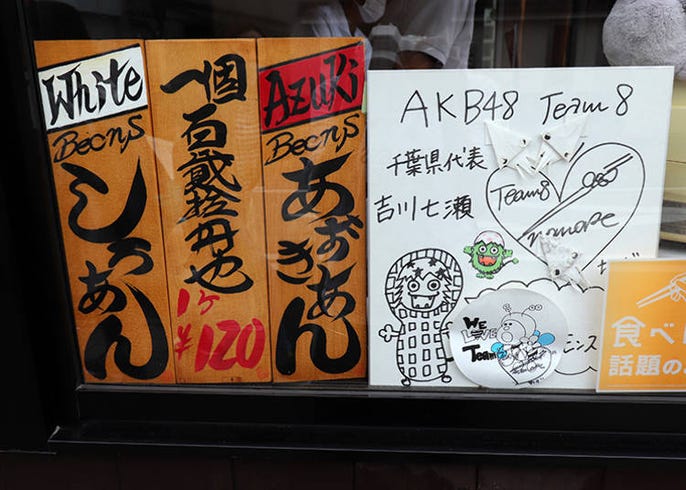 White
BeanS
しろあん
一個
百貳拾円也
1ケ
¥120
AzuKi
BeanS
あずきあん
AKB48 Team 8
千葉県代表
吉川七瀬
Team8
WE
LOVE
Team8
ミンス
食べ
話題の